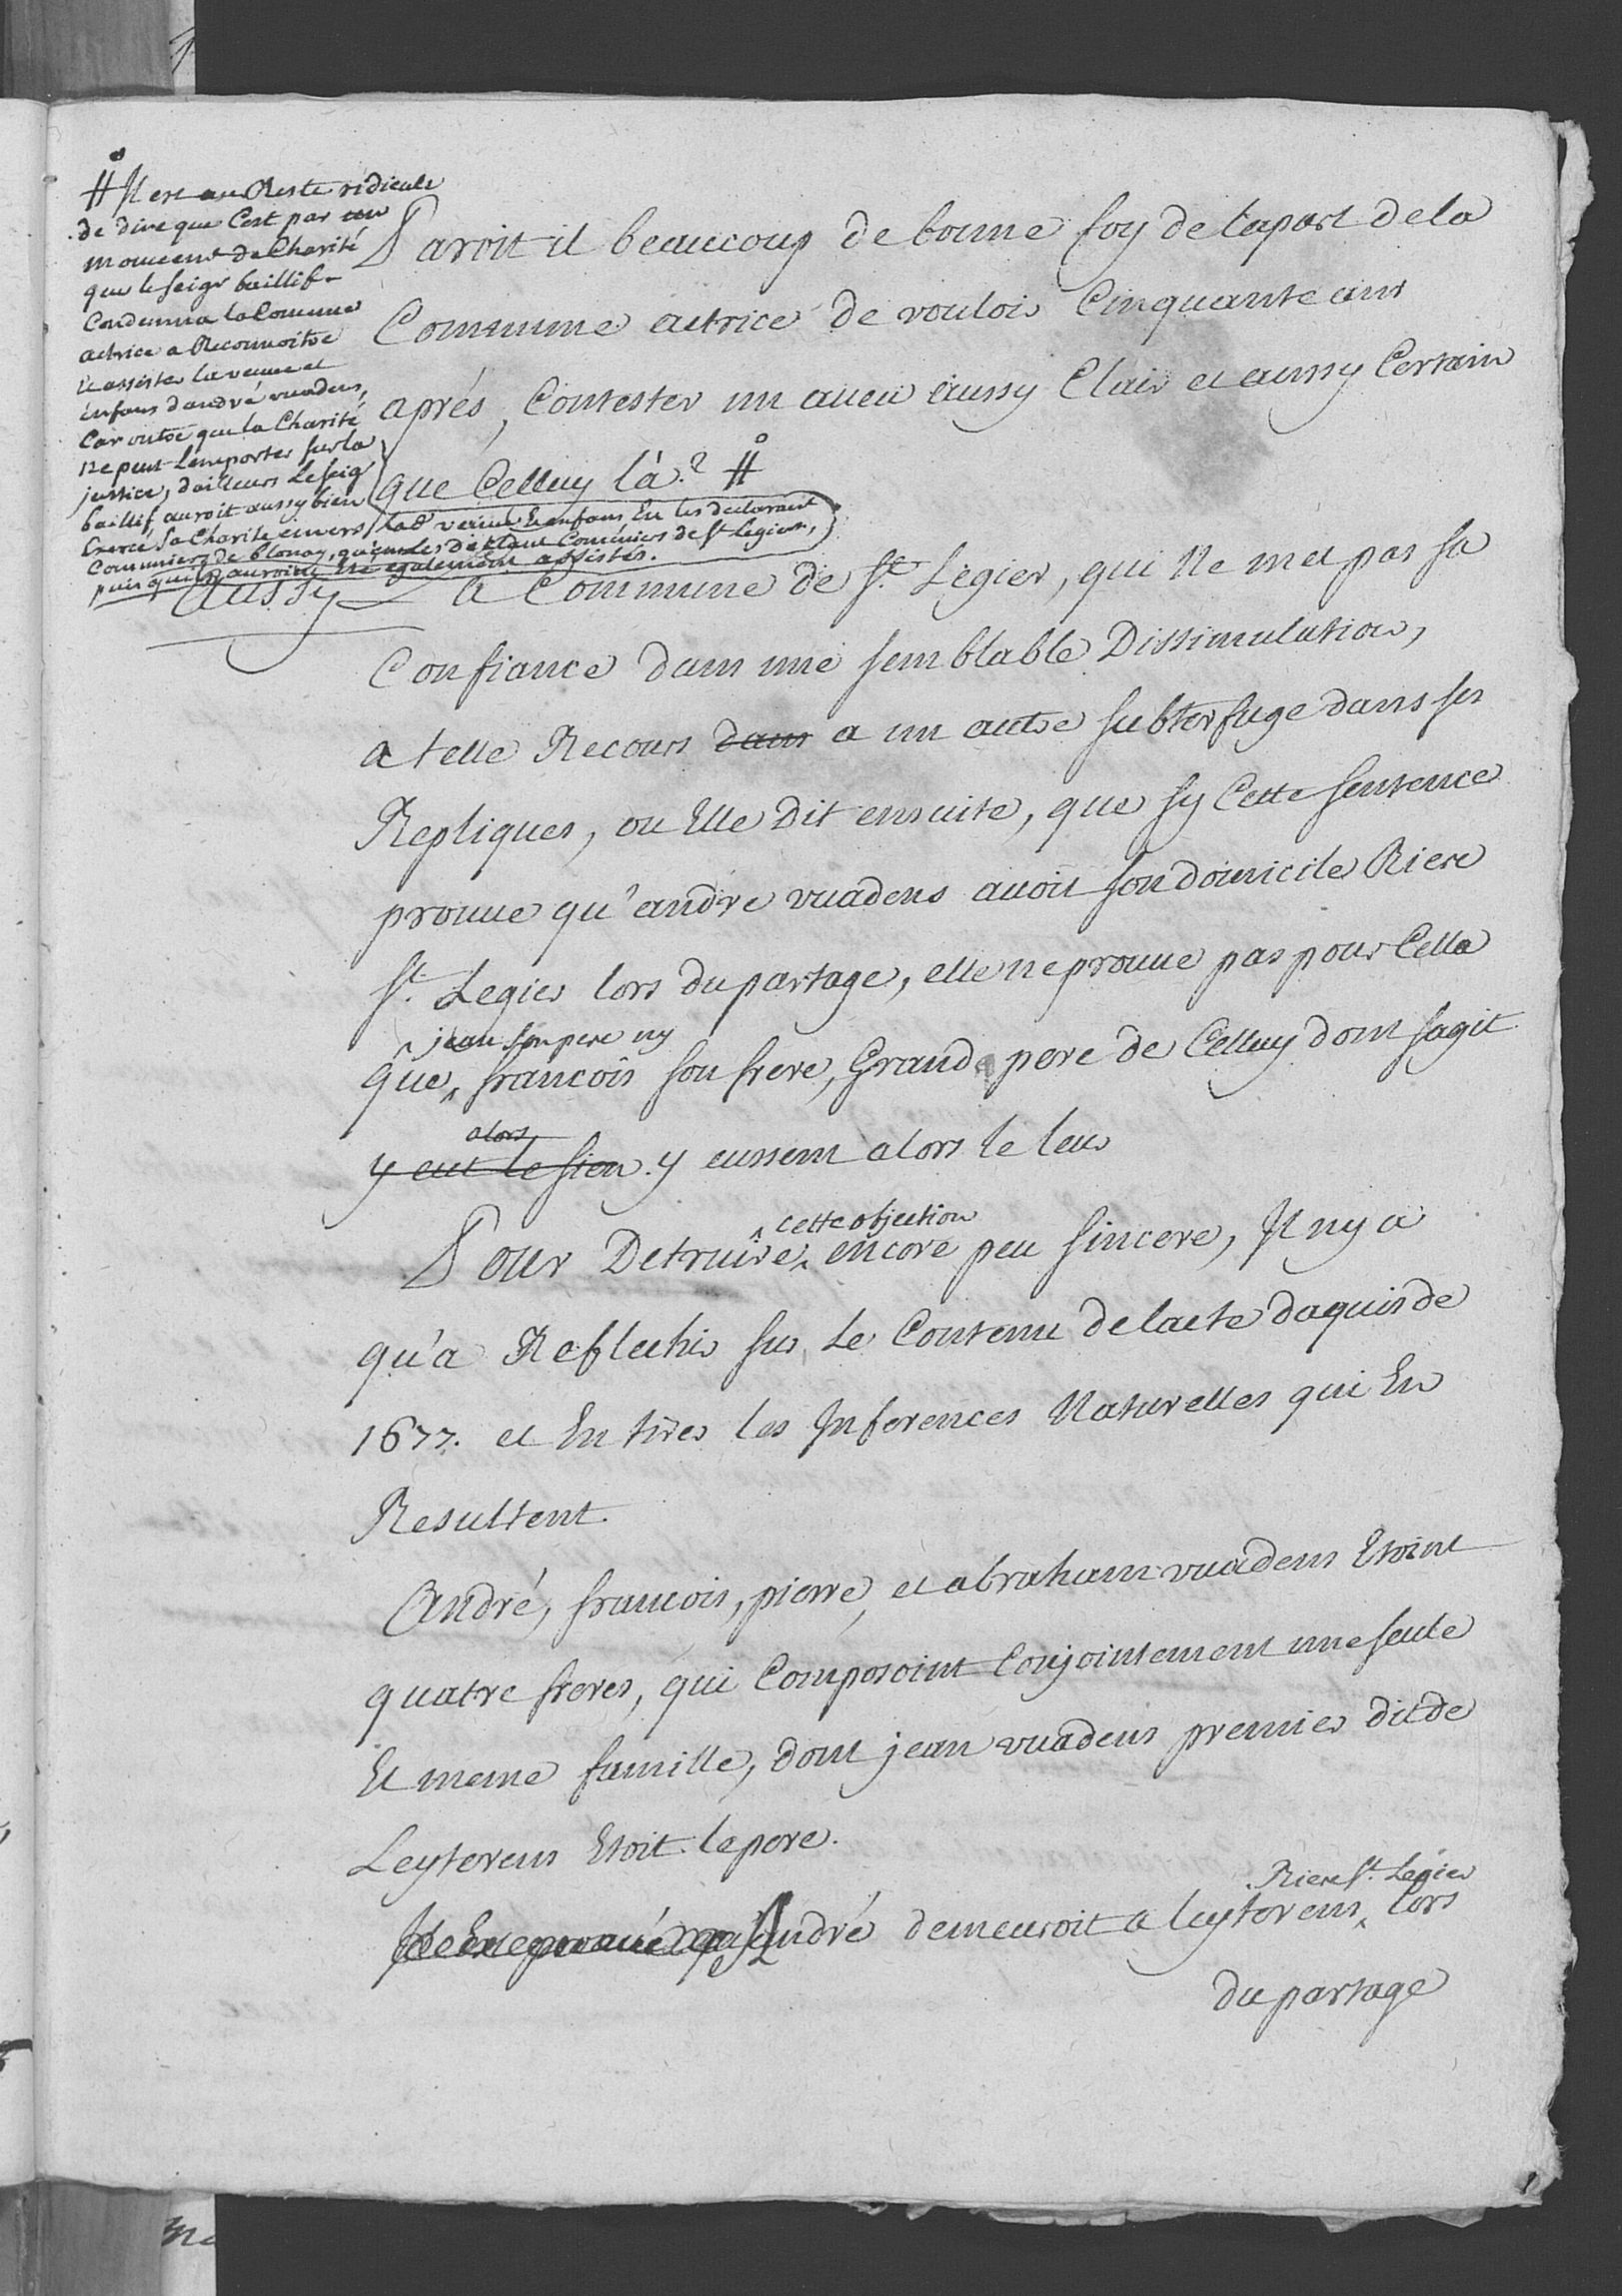 # Il est au Reste ridicule
de dire que C'est par un
mouvemt de Charité
que le seigr baillif
Condamna la Comune
actrice a Reconnoitre
et assister la veuve et
enfans d'andré vuadens,
Car outre que la Charité
ne peut Lemporter sur la
justice, dailleurs Le seigr
baillif auroit aussy bien
Exercé sa Charité envers lad.e veuve & enfans En les declarant
Communiers de blonay, qu'en Les disant Comuniers de St. Legier,
puis qu'ils auroint Eté egalement assistés.
Paroit il beaucoup de bonne foy de la part de la
Commune actrice de vouloir Cinquante ans
aprés, Contester un aveu aussy Clair et aussy Certain
que Celluy là? #
Aussy La Commune de St. Legier, qui Ne met pas sa
Confiance dans une semblable Dissimulation,
a telle Recours dans a un autre subterfuge dans ses
Repliques, ou Elle Dit ensuite, que sy Cette sentence
prouve qu'andre vuadens avoit son domicile Riere
St. Legier lors du partage, elle ne prouve pas pour Cella
jean son pere ny
que, francois son frere, Grand pere de Celluy dont sagit
alors
y eut le sien. y eussent alors le leur
cette objection
Pour Detruire encore peu sincere, Il ny a
qu'a Reflechir sur Le Contenu de lacte daquis de
1677. et En tirer les Inferences Naturelles qui En
Resultent.
André, francois, pierre, et abraham vuadens Etoint
quatre freres, qui Composoint Conjointement une seule
Et meme famille, dont jean vuadens premier dit de
Leyterens Etoit le pere.
Riere St. Legier
André demeuroit a leyterens, lors
du partage